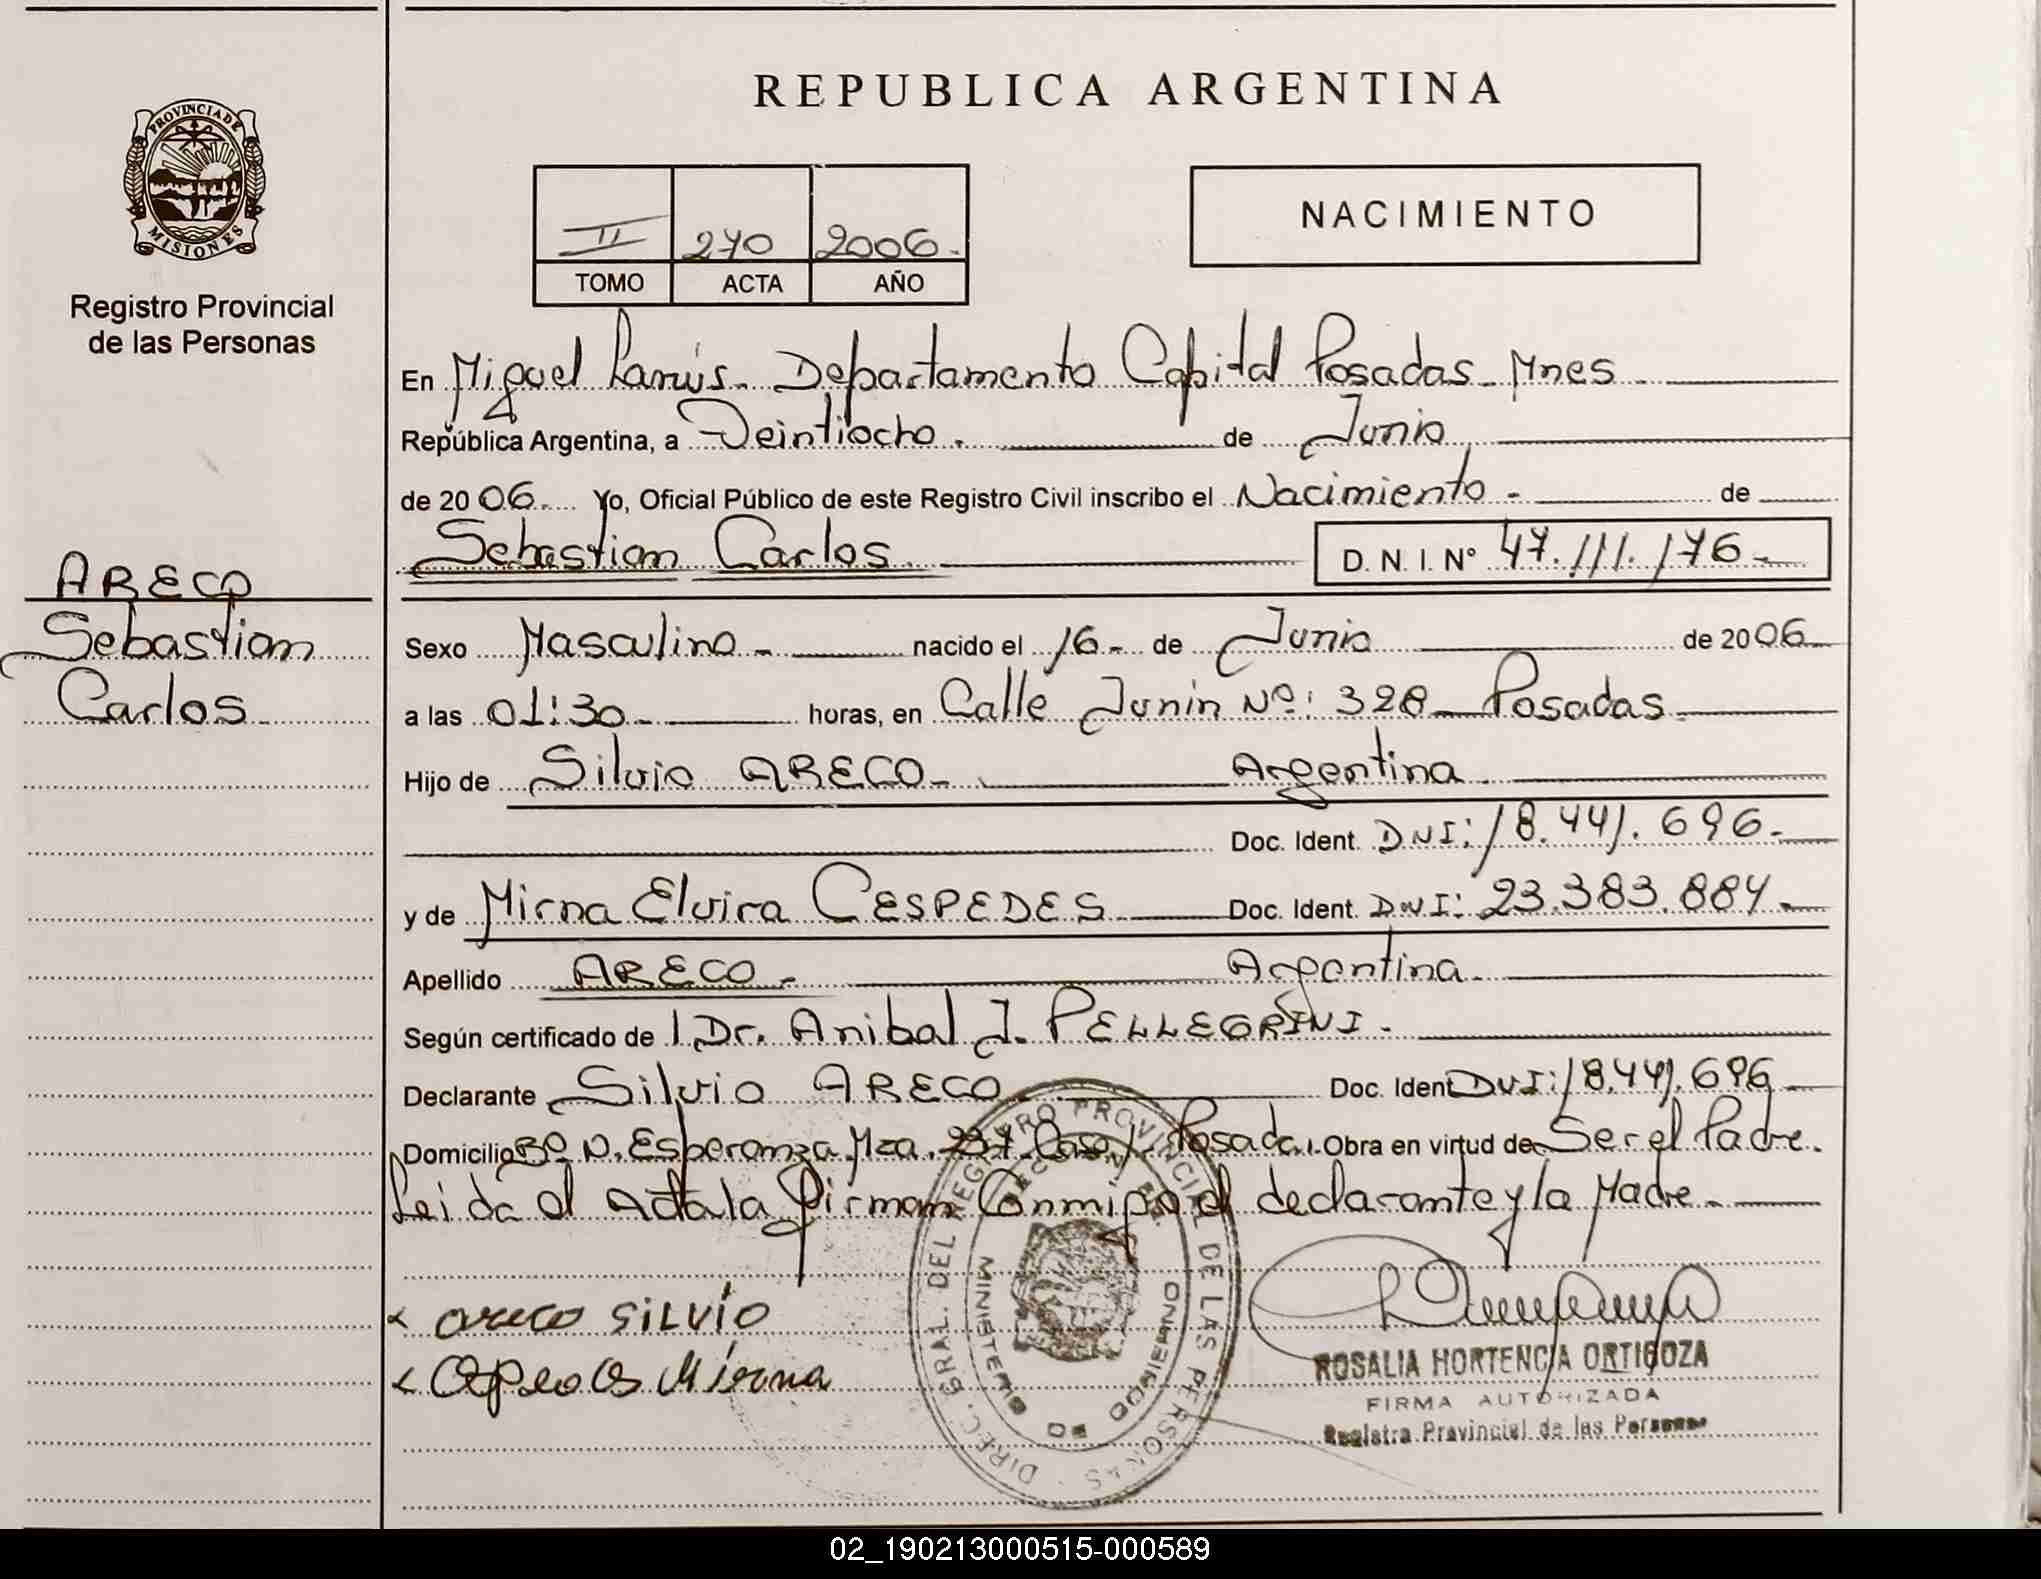 REPUBLICA ARGENTINA
PROVINCIA DE MISIONES
Registro Provincial
de las Personas
II 270 2006.
TOMO ACTA AÑO
NACIMIENTO
En Miguel Lanús. Departamento Capital Posadas Mnes
República Argentina, a Veintiocho. de Junio
de 2006. Yo, Oficial Público de este Registro Civil inscribo el Nacimiento - de
Sebastian Carlos D. N. I. Nº 47.111.176-
ARECO
Sebastian
Carlos
Sexo Masculino - nacido el 16- de Junio de 2006
a las 01:30 horas, en Calle Junin Nº: 328 Posadas
Hijo de Silvio ARECO- Argentina
Doc. Ident. DNI: 18.441.696-
y de Mirna Elvira CESPEDES Doc. Ident. DNI: 23.383.884-
Apellido ARECO- Argentina
Según certificado de Dr. Anibal J. PELLEGRINI-
Declarante Silvio ARECO Doc. Ident DNI: 18.441.696
Domicilio Bº N. Esperanza Mza. 237 Casa Posadas. Obra en virtud de Ser el Padre.
Leida el Acta la firman Conmigo el declarante y la Madre
Areco SiLViO
Cespedes Mirna
DIREC. GRAL. DEL REGISTRO PROVINCIAL DE LAS PERSONAS
MINISTERIO DE GOBIERNO
ROSALIA HORTENCIA ORTIGOZA
FIRMA AUTORIZADA
Registro Provincial de las Personas
02_190213000515-000589